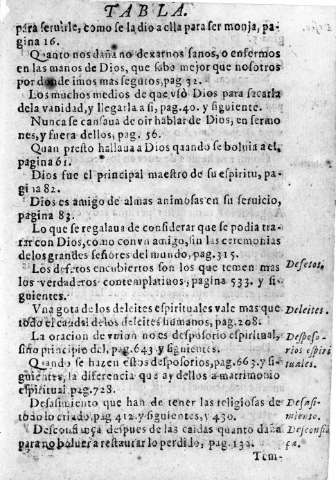 TABLA.
para seruirle, como se la dio a ella para ser monja, pa-
gina 16.
Quanto nos daña no dexarnos sanos, o enfermos
en las manos de Dios, que sabe mejor que nosotros
por donde imos mas seguros, pag 32.
Los muchos medios de que vsò Dios para sacarla
dela vanidad, y llegarla a si, pag. 40. y siguiente.
Nunca se cansaua de oir hablar de Dios, en sermo
nes, y fuera dellos, pag. 56.
Quan presto hallaua a Dios quando se boluia a el,
pagina 61.
Dios fue el principal maestro de su espiritu, pa-
gina 82.
Dios es amigo de almas animosas en su seruicio,
pagina 83.
Lo que se regalaua de considerar que se podia tra-
tar con Dios, como con vn amigo, sin las ceremonias
de los grandes señores del mundo, pag. 315.
Los defetos encubiertos son los que temen mas
los verdaderos contemplatiuos, pagina 533. y si-
guientes.
Defetos.
Vna gota de los deleites espirituales vale mas que
todo el caudal de los deleites humanos, pag. 208.
Deleites.
La oracion de vnion no es desposorio espiritual,
sino principio del, pag. 643 y siguientes.
Quando se hazen estos desposorios, pag. 663. y si-
guientes, la diferencia que ay dellos a matrimonio
espiritual pag. 728.
Desposo-
rios espiri
tuales.
Desasimiento que han de tener las religiosas de
todo lo criado, pag 412. y siguientes, y 430.
Desasi-
miento.
Desconfiança despues de las caidas quanto daña
para no boluer a restaurar lo perdido, pag. 132.
Desconfiã
ça.
Tem-